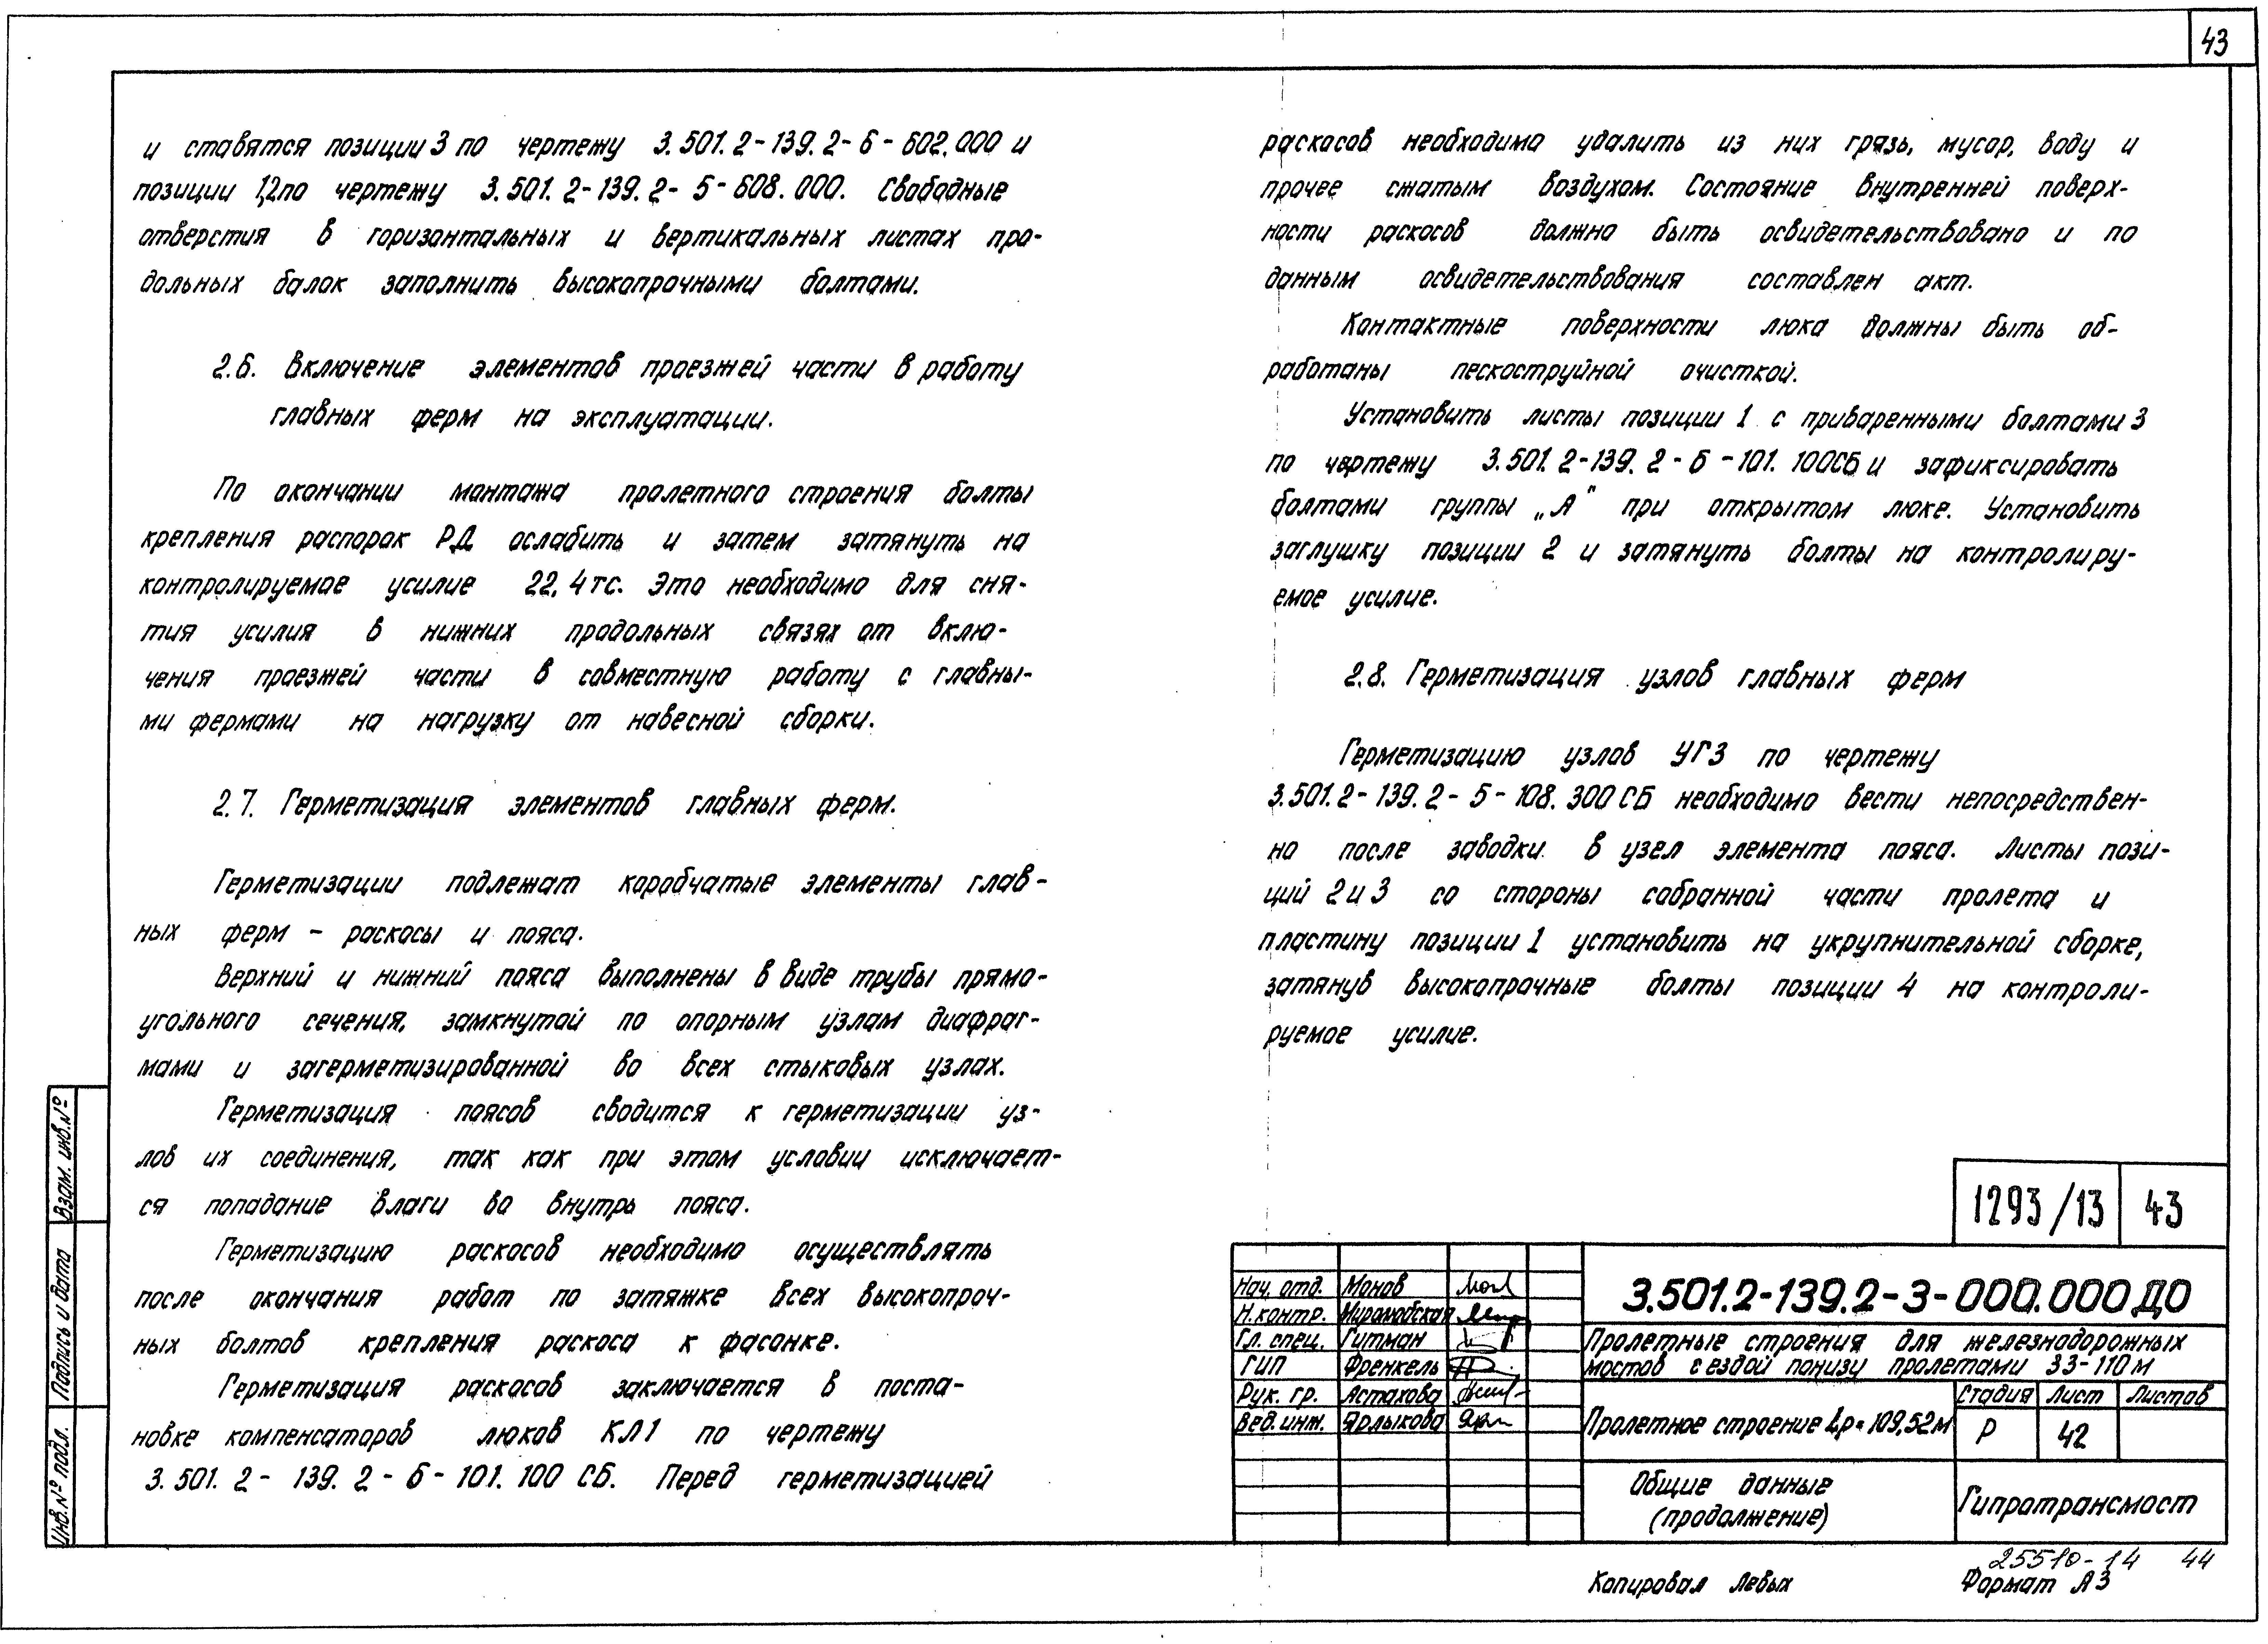 43
и ставятся позиции 3 по чертежу 3.501.2-139.2-6-602.000 и
позиции 1,2 по чертежу 3.501.2-139.2-5-608.000. Свободные
отверстия в горизонтальных и вертикальных листах про-
дольных балок заполнить высокопрочными болтами.
2.6. Включение элементов проезжей части в работу
главных ферм на эксплуатации.
По окончании монтажа пролетного строения болты
крепления распорок РД ослабить и затем затянуть на
контролируемое усилие 22,4 тс. Это необходимо для сня-
тия усилия в нижних продольных связях от вклю-
чения проезжей части в совместную работу с главны-
ми фермами на нагрузку от навесной сборки.
2.7. Герметизация элементов главных ферм.
Герметизации подлежат коробчатые элементы глав-
ных ферм - раскосы и пояса.
Верхний и нижний пояса выполнены в виде трубы прямо-
угольного сечения, замкнутой по опорным узлам диафраг-
мами и загерметизированной во всех стыковых узлах.
Герметизация поясов сводится к герметизации уз-
лов их соединения, так как при этом условии исключает-
ся попадание влаги во внутрь пояса.
Герметизацию раскосов необходимо осуществлять
после окончания работ по затяжке всех высокопроч-
ных болтов крепления раскоса к фасонке.
Герметизация раскосов заключается в поста-
новке компенсаторов люков КЛ1 по чертежу
3.501.2-139.2-6-101.100 СБ. Перед герметизацией
раскосов необходимо удалить из них грязь, мусор, воду и
прочее сжатым воздухом. Состояние внутренней поверх-
ности раскосов должно быть освидетельствовано и по
данным освидетельствования составлен акт.
Контактные поверхности люка должны быть об-
работаны пескоструйной очисткой.
Установить листы позиции 1 с приваренными болтами 3
по чертежу 3.501.2-139.2-6-101.100СБ и зафиксировать
болтами группы „А" при открытом люке. Установить
заглушку позиции 2 и затянуть болты на контролиру-
емое усилие.
2.8. Герметизация узлов главных ферм
Герметизацию узлов УГ3 по чертежу
3.501.2-139.2-5-108.300 СБ необходимо вести непосредствен-
но после заводки в узел элемента пояса. Листы пози-
ций 2 и 3 со стороны собранной части пролета и
пластину позиции 1 установить на укрупнительной сборке,
затянув высокопрочные болты позиции 4 на контроли-
руемое усилие.
Взам. инв.№
Подпись и дата
Инв.№ подл.
1293/13 43
3.501.2-139.2-3-000.000 ДО
Нач. отд. Монов
Н.контр. Миромобская
Гл. спец. Гитман
ГИП Френкель
Рук. гр. Астахова
Вед. инж. Ярлыкова
Пролетные строения для железнодорожных
мостов с ездой понизу пролетами 33-110 м
Пролетное строение Lр=109,52м
Стадия Лист Листов
Р 42
Общие данные
(продолжение)
Гипротрансмост
25510-14 44
Копировал Левых Формат А3